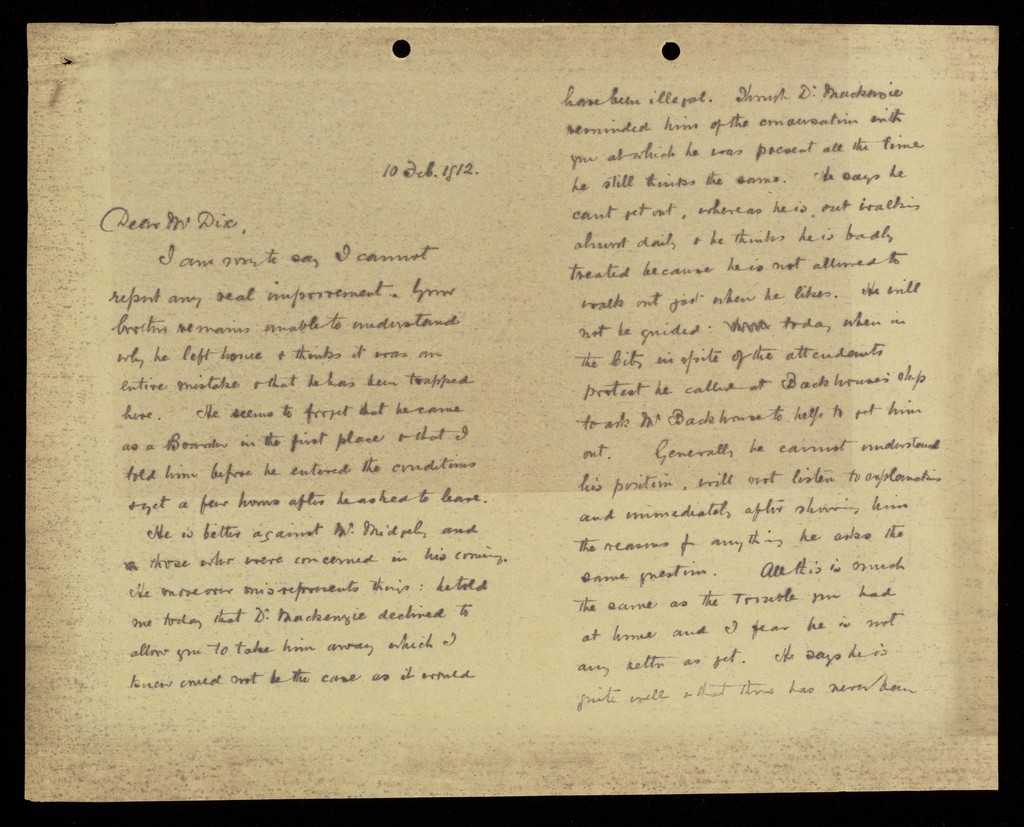 10 Feb. 1912.
Dear Mr Dix,
I am sorry to say I cannot
report any real improvement. Your
brother remains unable to understand
why he left home & thinks it was an
entire mistake & that he has been trapped
here. He seems to forget that he came
as a Boarder in the first place & that I
told him before he entered the conditions
& yet a few hours after he asked to leave.
He is bitter against Mr Midgely and
those who were concerned in his coming.
He moreover misrepresents things: he told
me today that Dr Mackenzie declined to
allow you to take him away which I
knew could not be the case as it would
have been illegal. Though Dr Mackenzie
reminded him of the conversation with
you at which he was present all the time
he still thinks the same. He says he
cant get out, whereas he is out walking
almost daily & he thinks he is badly
treated because he is not allowed to
walk out just when he likes. He will
not be guided: today when in
the City in spite of the attendants
protest he called at Backhouse's shop
to ask Mr Backhouse to help to get him
out. Generally he cannot understand
his position, will not listen to explanations
and immediately after showing him
the reasons for anything he asks the
same question. All this is much
the same as the trouble you had
at home and I fear he is not
any better as yet. He says he is
quite well & that there has never been